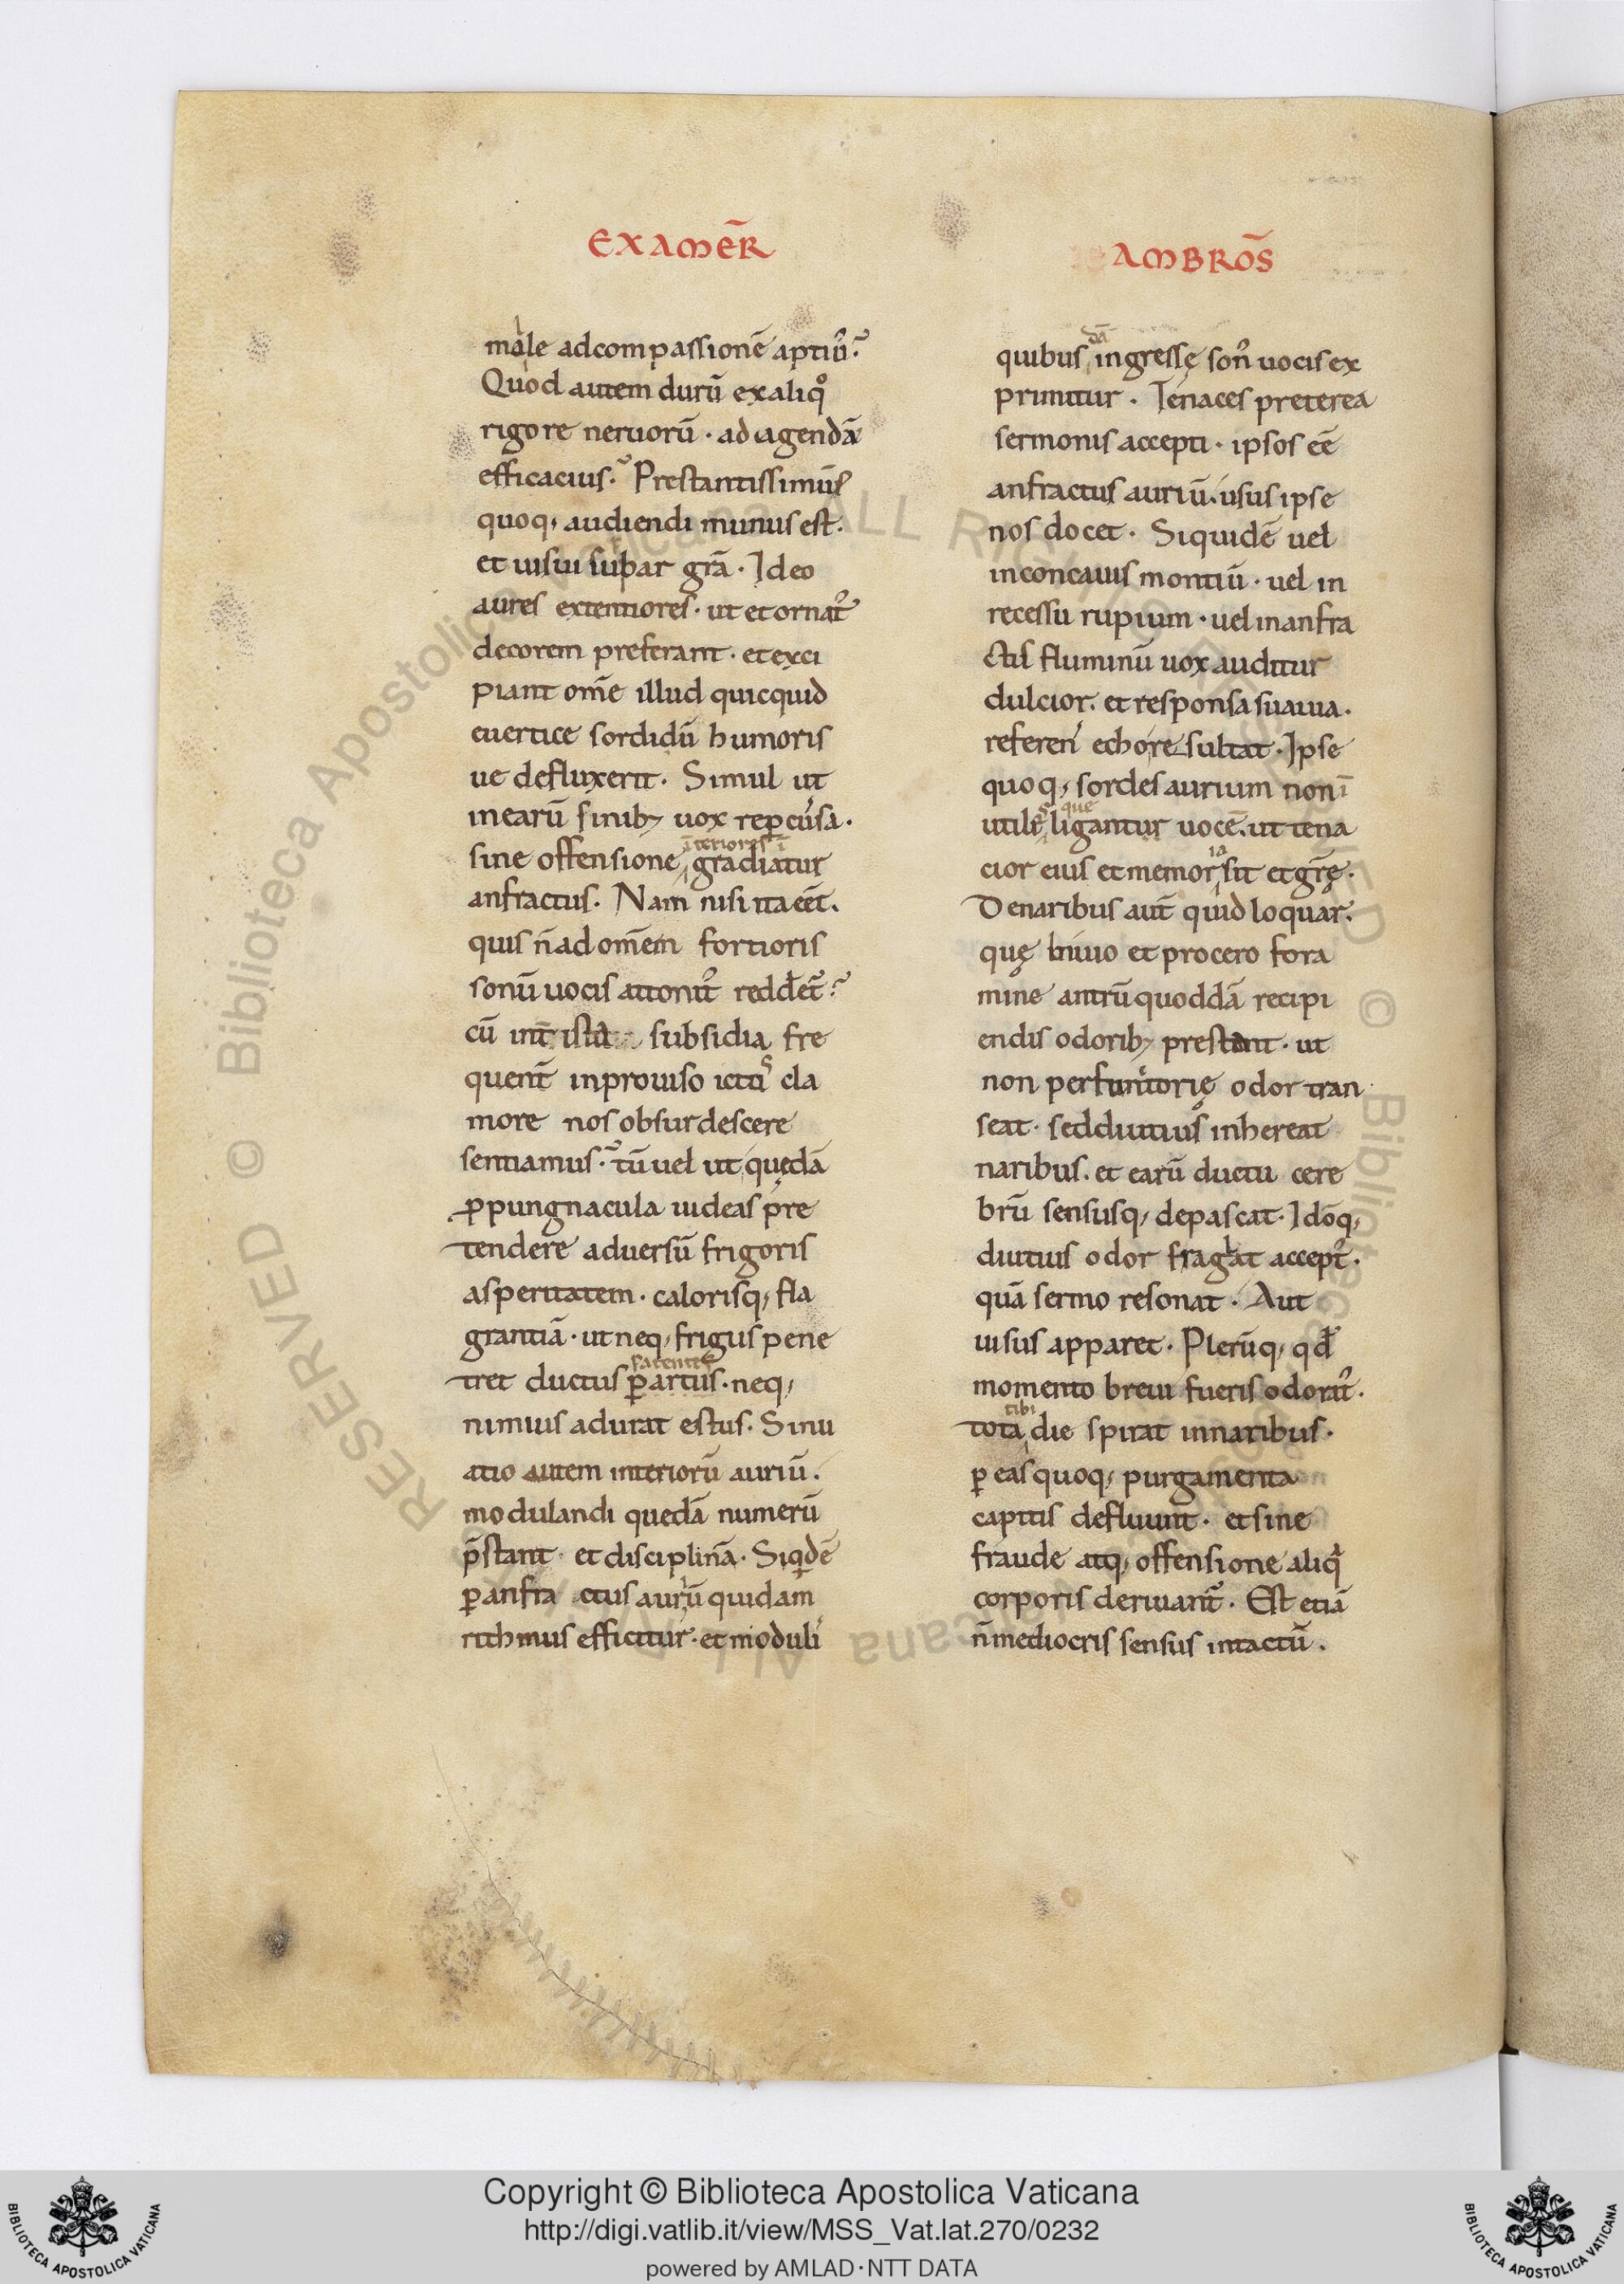 EXAMER̄
male adcompassionē aptiꝰ.
Quod autem durū exaliqͦ
rigore neruorū · ad agendā
efficacius. Prestantissimūs
quoq; audiendi munus est.
et uisui subpar grā · Ideo
aures extentiores · ut et ornatꝰ
decorem preferant · et exci
piant om̄e illud quicquid
euertice sordidū humoris
ue defluxerit. Simul ut
inearū sinib; uox reꝑcussa.
īteriores ī
sine offensione gradiatur
anfractus. Nam nisi ita eēt.
quis n̄ ad om̄em fortioris
sonū uocis attonitꝰ redderet᷑
cū int̄ ista subsidia fre
quent̄ inprouiso ictus cla
more nos obsurdescere
sentiamus. tū uel ut quędā
ꝓpungnacula uideas pre
tendere aduersū frigoris
asperitatem · calorisq; fla
grantiā · ut neq; frigus pene
patentes
tret ductus ꝑ artus · neq;
nimius adurat estus. Sinu
atio autem interiorū auriū.
modulandi quedā numerū
p̄stant · et disciplinā. Siqidē
ꝑ anfra ctus auriū quidam
rithmus efficitur · et moduli
AMBROS̄
dā
quibus ingressę sonꝰ uocis ex
primitur. Tenaces preterea
sermonis accepti · ipsos eē
anfractus auriū. usus ipse
nos docet. Siquidē uel
inconcauis montiū · uel in
recessu rupium · uel inanfra
ctis fluminū uox auditur
dulcior. et responsa suauia.
referens echo resultat. Ipse
quoq; sordes aurium non ī
s que
utiles ligantur uocē. ut tena
ia
cior eius et memor sit et gr̄ę.
Denaribus aut̄ quid loquar.
quę biuio et procero fora
mine antrū quoddā recipi
endis odorib; prestant · ut
non perfunctorię odor tran
seat · sed diutius inhereat
naribus. et earū ductu cere
brū sensusq; depascat. Idōq;
diutius odor fraglat acceptꝰ.
quā sermo resonat. Aut
uisus apparet. Plerūq; qd̄
momento breui fueris odoratꝰ.
tibi
tota die spirat innaribus.
ꝑ eas quoq; purgamenta
capitis defluunt. et sine
fraude atq; offensione aliqͣ
corporis deriuant᷑. Est etiā
n̄ mediocris sensus intactū.
Copyright © Biblioteca Apostolica Vaticana
http://digi.vatlib.it/view/MSS_Vat.lat.270/0232
powered by AMLAD·NTT DATA
BIBLIOTECA APOSTOLICA VATICANA
BIBLIOTECA APOSTOLICA VATICANA